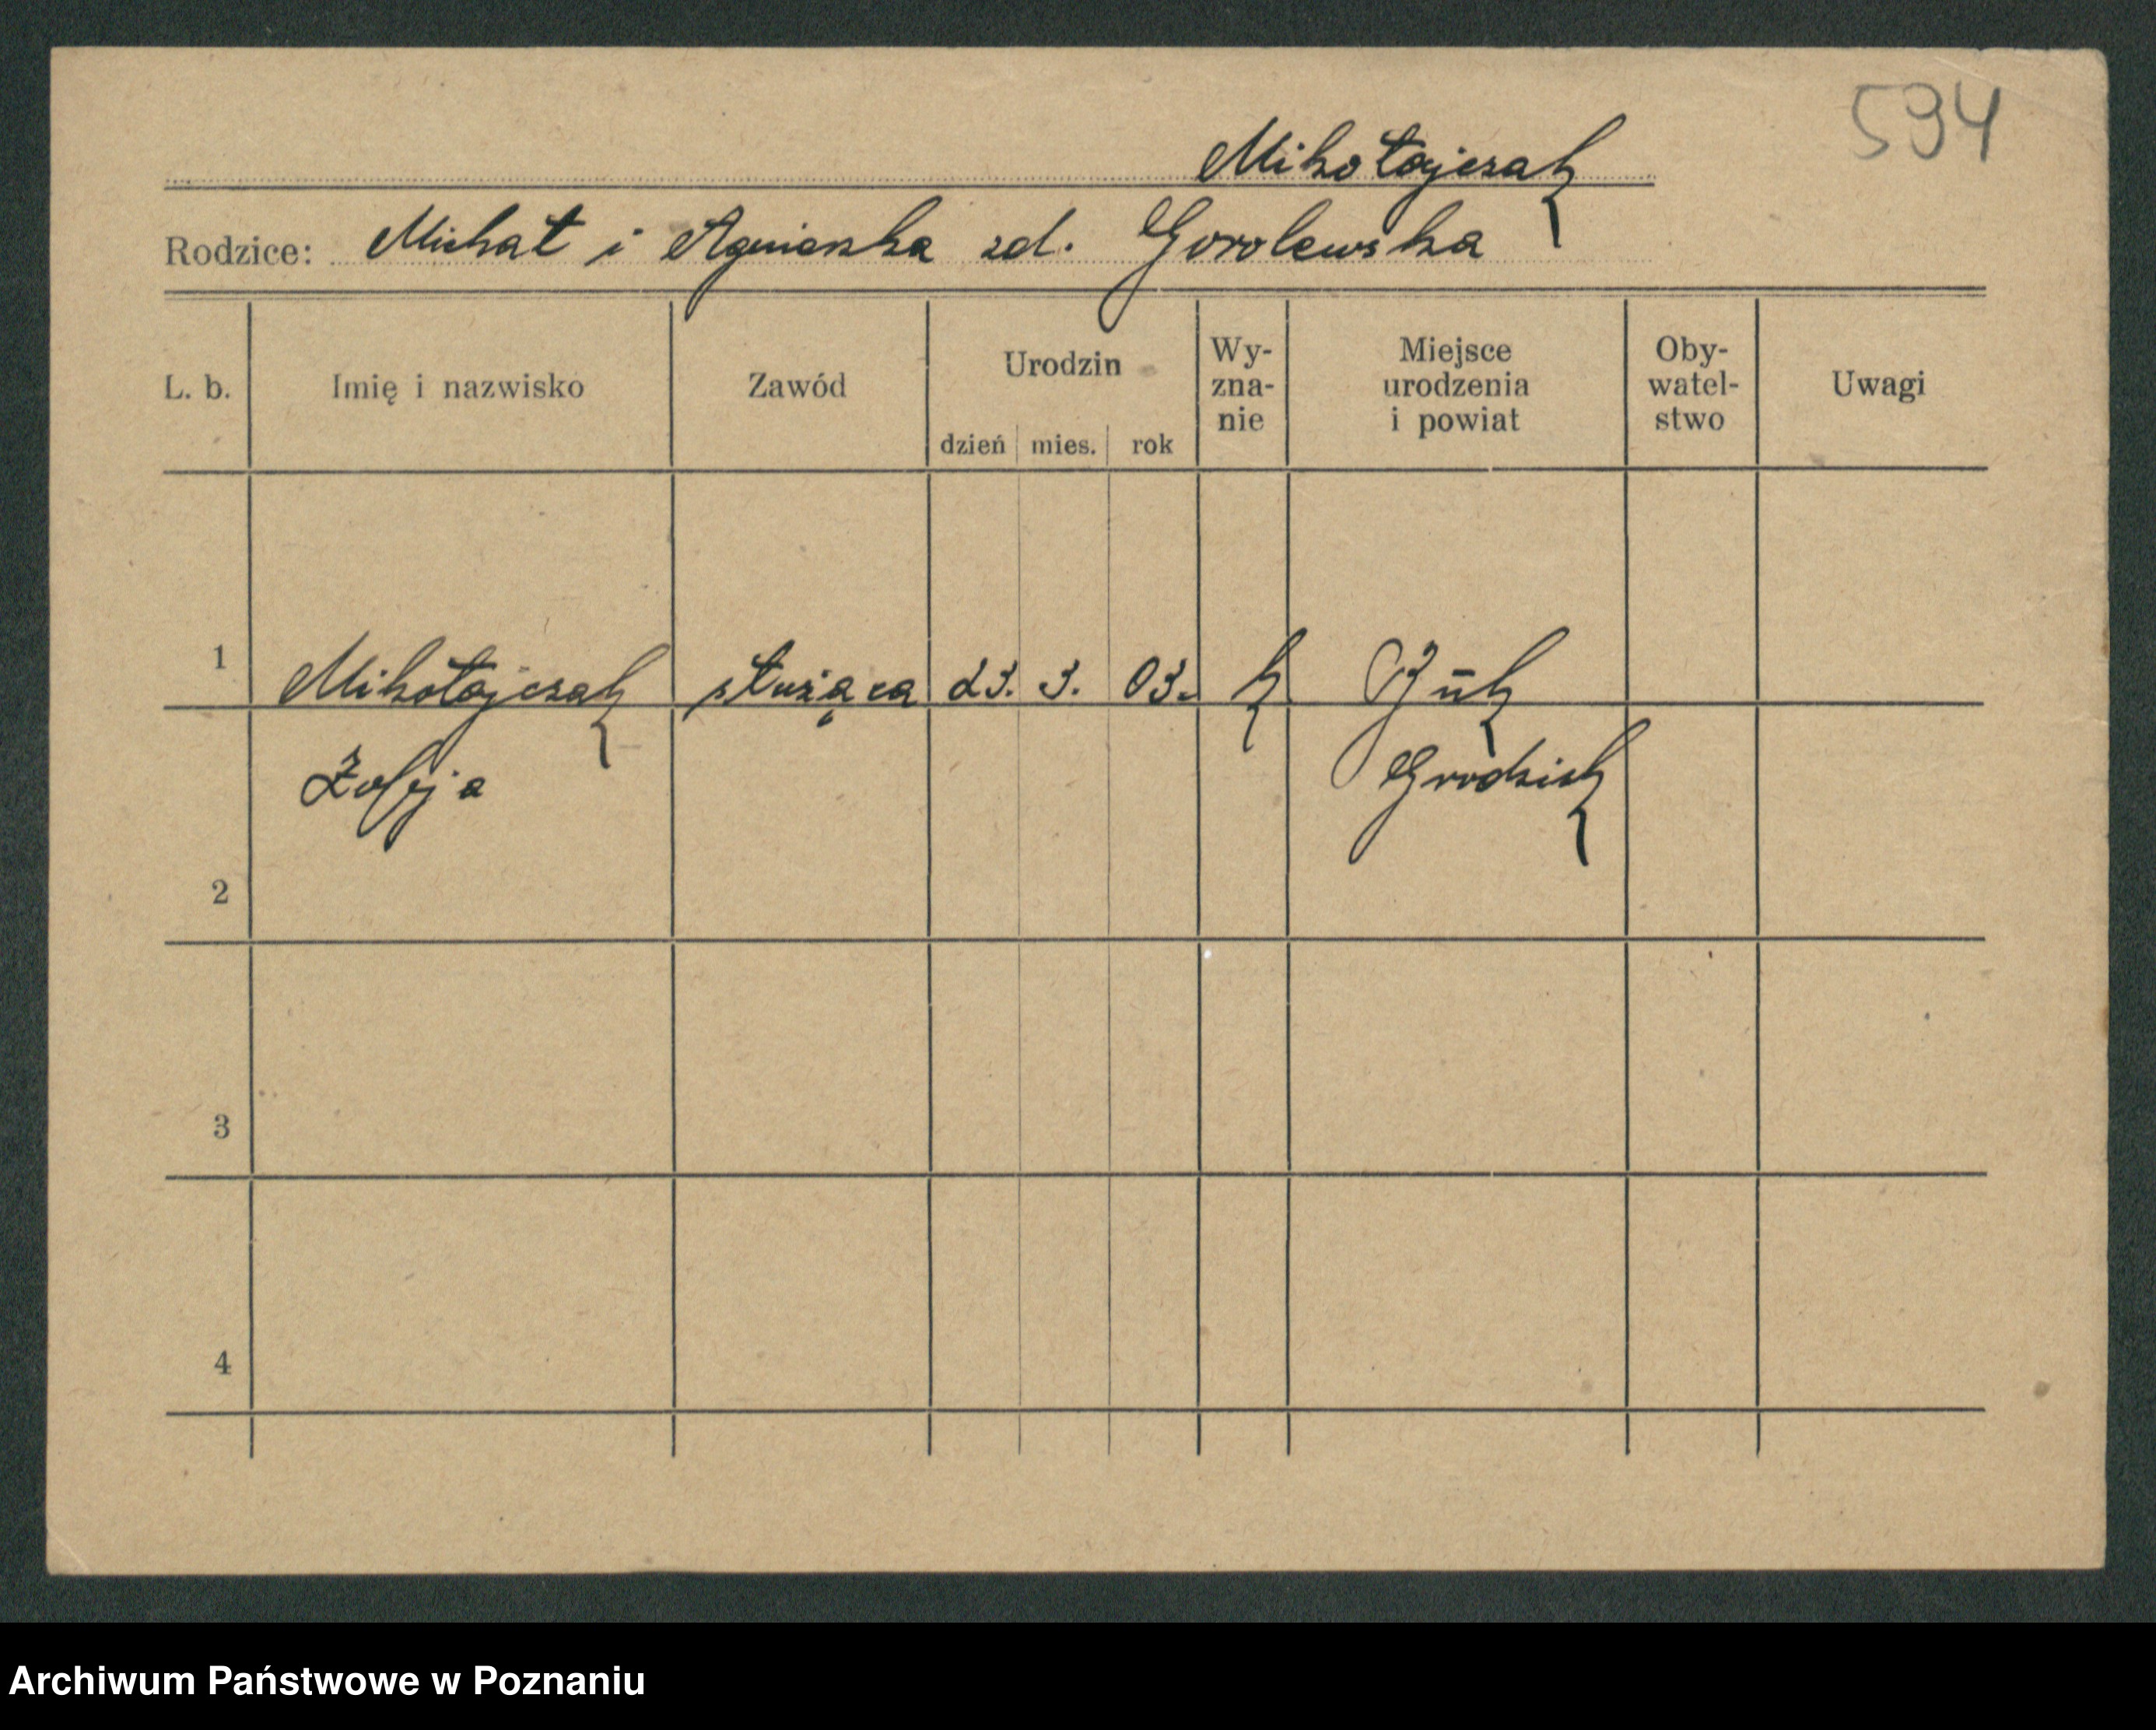 594
Mikołajczak
Rodzice: Michał i Agnieszka zd. Gorolewska
L. b. Imię i nazwisko Zawód Urodzin dzień mies. rok Wy-zna-nie Miejsce urodzenia i powiat Oby-watel-stwo Uwagi
1 Mikołajczak służąca 23. 3. 03. k Buk
Zofja Grodzisk
2
3
4
Archiwum Państwowe w Poznaniu